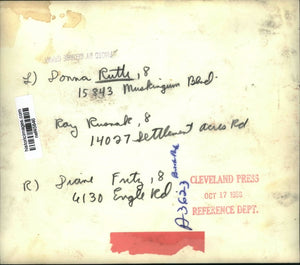 L) Donna Ruth, 8
15843 Muskingum Blvd.
Ray Rusnak, 8
14027 Settlement Acres Rd
R) Diane Fritz, 8
6130 Engle Rd.
CLEVELAND PRESS
OCT 17 19
REFERENCE DEPT.
A3623